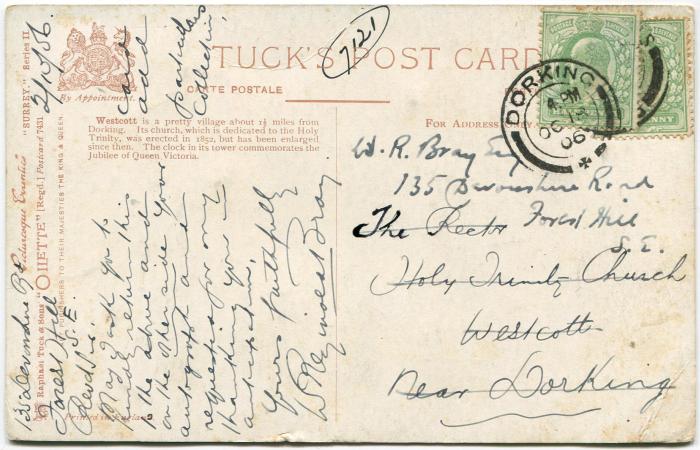 TUCK'S POST CARD
CARTE POSTALE
7121
By Appointment.
Westcott is a pretty village about 1½ miles from
Dorking. Its church, which is dedicated to the Holy
Trinity, was erected in 1852, but has been enlarged
since then. The clock in its tower commemorates the
Jubilee of Queen Victoria.
FOR ADDRESS ONLY
DORKING
4.PM
OC 12
06
W. R. Bray Esq
135 Devonshire Road
Forest Hill
S.E.
The Rector
Holy Trinity Church
Westcott
Near Dorking
Forest Hill
S.E.
Revd Sir,
May I ask you to
kindly return this
to the above and
on the other side your
autograph and in
requesting for my
thanking you in
anticipation,
Yours faithfully
W Reginald Bray
and
add
particulars
Collection,
Raphael Tuck & Sons' "OILETTE" [Regd.] Postcard 7431.
"SURREY." Series II
Picturesque Counties
PUBLISHERS TO THEIR MAJESTIES THE KING & QUEEN.
Printed in England